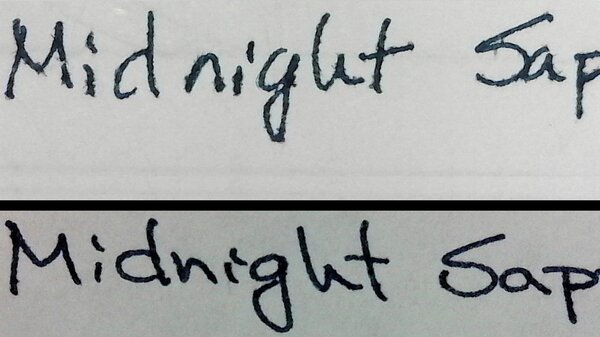 Midnight Sap
Midnight Sap